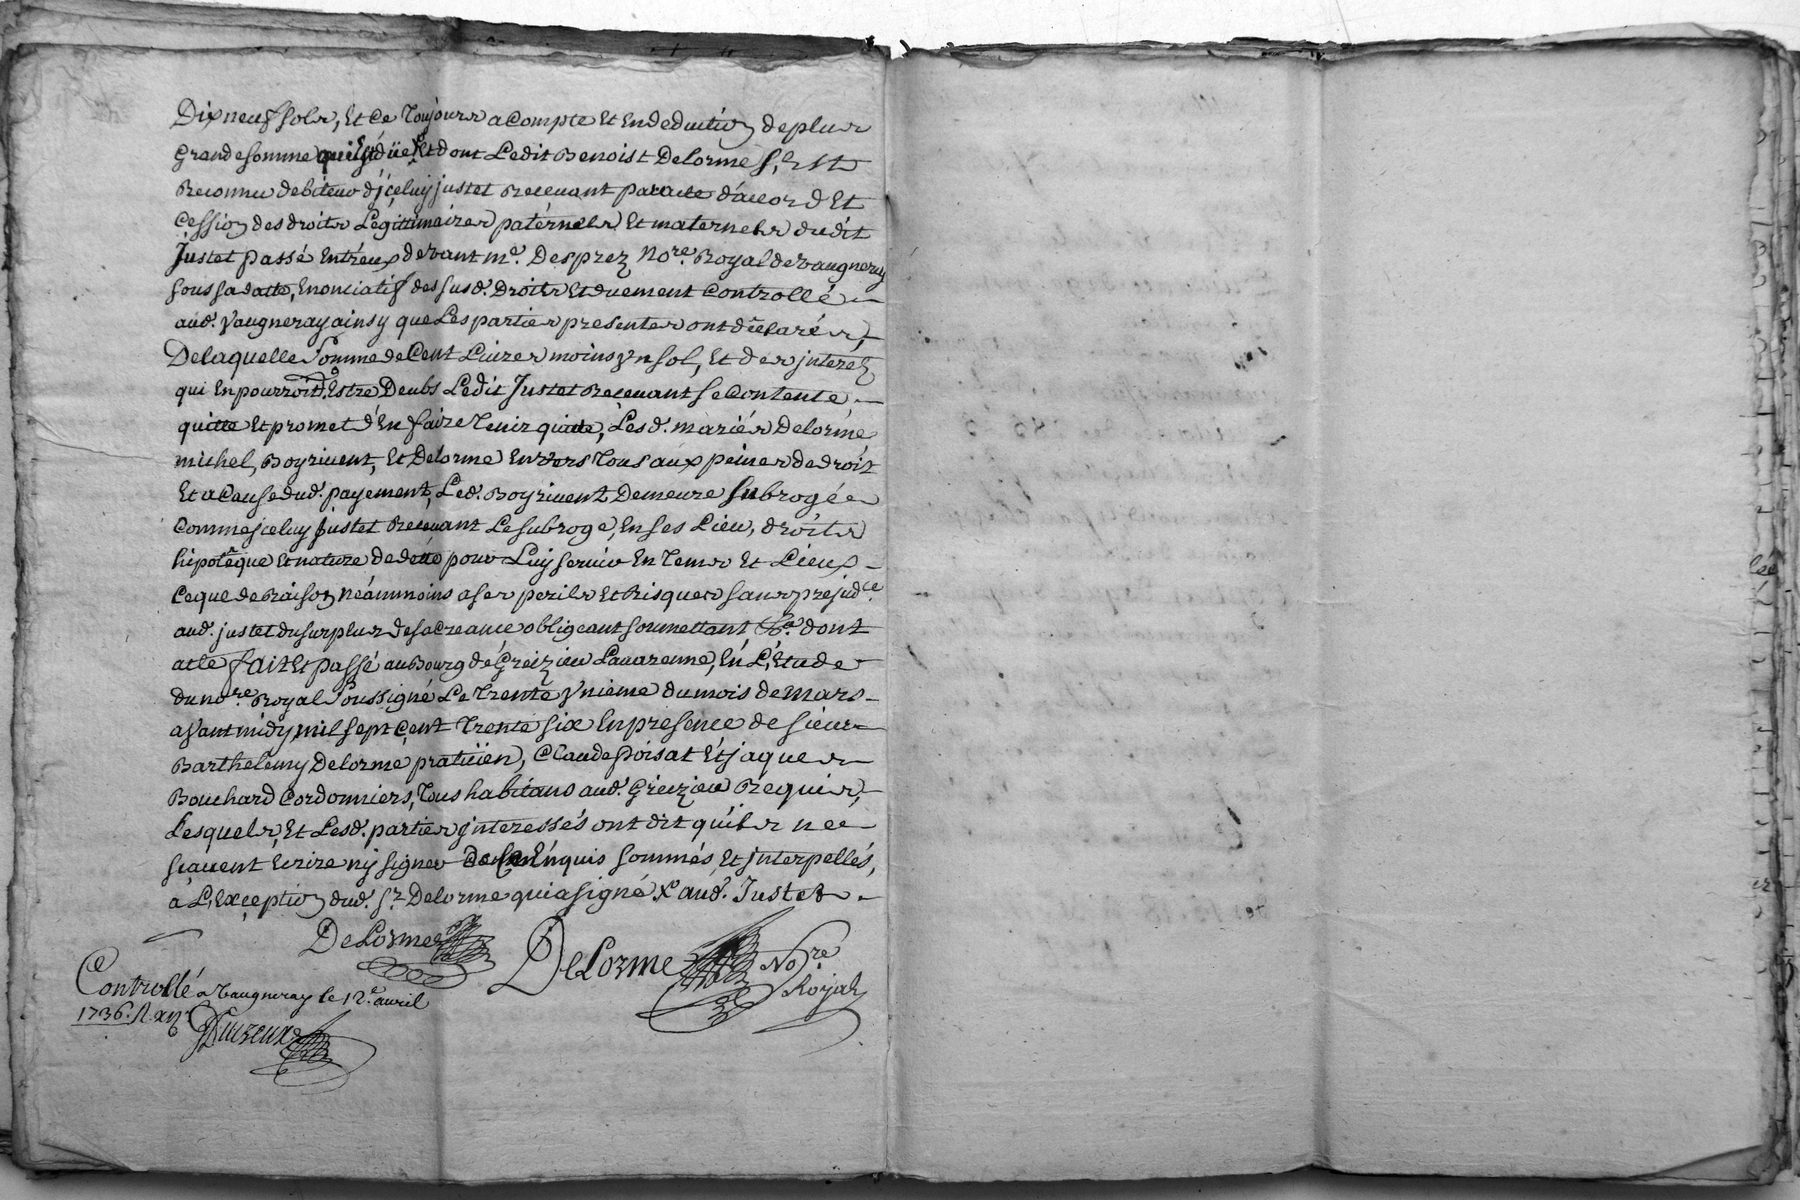 Dix neuf sols, Et Ce Toujours a Compte Et En deduction de plus
Grande somme qui Est düe Et dont Ledit Benoist Delorme s'Est
Reconnu debiteur d'jçeluy justet Recevant par acte d'acord Et
Cession des droits Légittimaires patérnels Et maternels dudit
Justet passé Entréux devant me. Desprez Nore. Royal de vaugneray
sous sa datte, Enonciatif des susd. Droits Et duement Controllé
aud. Vaugneray ainsy que Les parties presentes ont déclarés,
De laquelle Somme de Cent Livres moins yn sol, Et des jnterets
qui En pourroit Estre Deubs Ledit Justet Recevant se Contente
quitte Et promet d'En faire Tenir quitte, Lesd. mariés Delorme
michel, Boyrivent, Et Delorme Envers Tous aux peines de droit
Et a Cause dud. payement, Led. Boyrivent Demeure subrogée
Comme jceluy justet Recevant Le subroge, En ses Lieu, droits
hipotêque Et nature de dette pour Luy servir En Tems Et Lieux
Ce que de Raison néammoins a ses perils Et Risques sans prejudce.
aud. justet du surplus de sa Creance obligeant soumettant &a. dont
acte fait Et passé au Bourg dé Greizieu Lavarenne, En L'Etude
du nore. Royal Soussigné Le Trente ynieme du mois de mars
avant midy, mil sept Cent Trente six En presence de sieur
Barthelemy Delorme praticien, Claude poisat Et jaques
Bouchard Cordonniers, Tous habitans aud. Greizieu Requis,
Lesquels, Et Lesd. parties jnteressés ont dit qu'ils ne
scavent Ecrire ny signer Enquis sommés, Et jnterpellés,
à L'Exception dud. sr. Delorme qui a signé. X aud. Justet
DeLorme
DeLorme Nore
Royal
Controllé a Vaugneray le 12e. avril
1736.